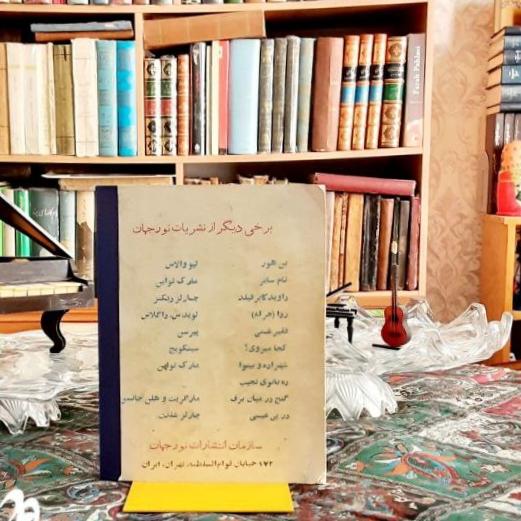 برخی دیگر از نشریات نور جهان
بن هور لیو والاس
تام سایر مارک تواین
داوید کاپرفیلد چارلز دیکنز
ردا (خرقه) لوید، س، داگلاس
فقیر غنی پیرسن
کجا میروی؟ سینکویچ
شهزاده و بینوا مارک تواین
ده بانوی نجیب
گنج در میان برف مارگریت و هلن جانسن
در پی عیسی چارلز شلدن
سازمان انتشارات نور جهان
۱۷۲ خیابان قوام‌السلطنه، تهران، ایران
Farah Pahlavi